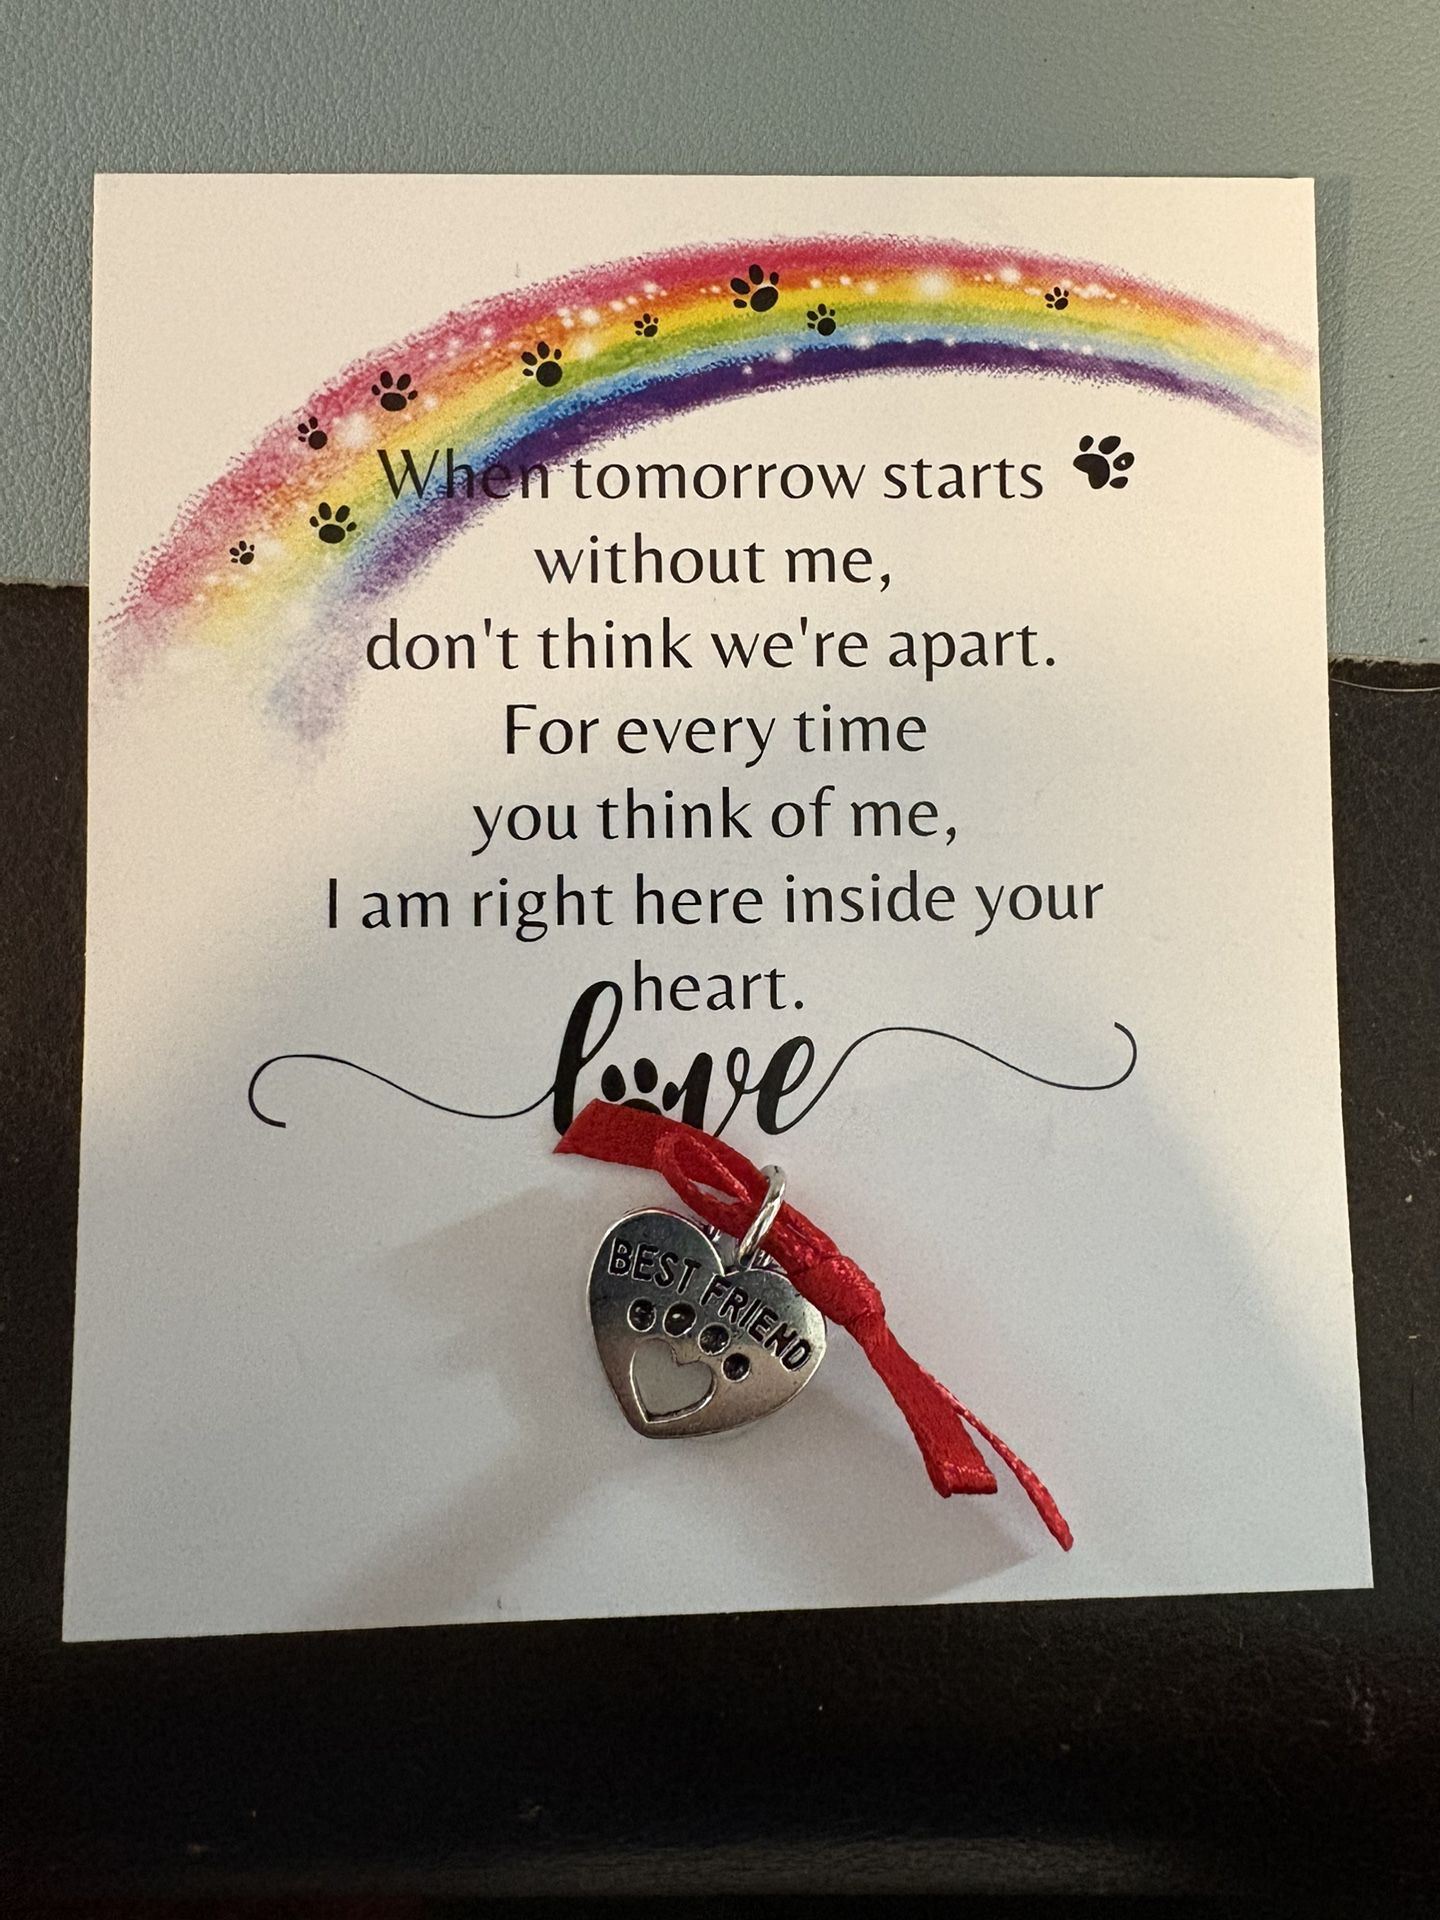 When tomorrow starts
without me,
don't think we're apart.
For every time
you think of me,
I am right here inside your
heart.
love
BEST FRIEND